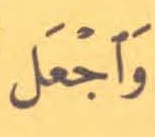 وَٱجْعَل